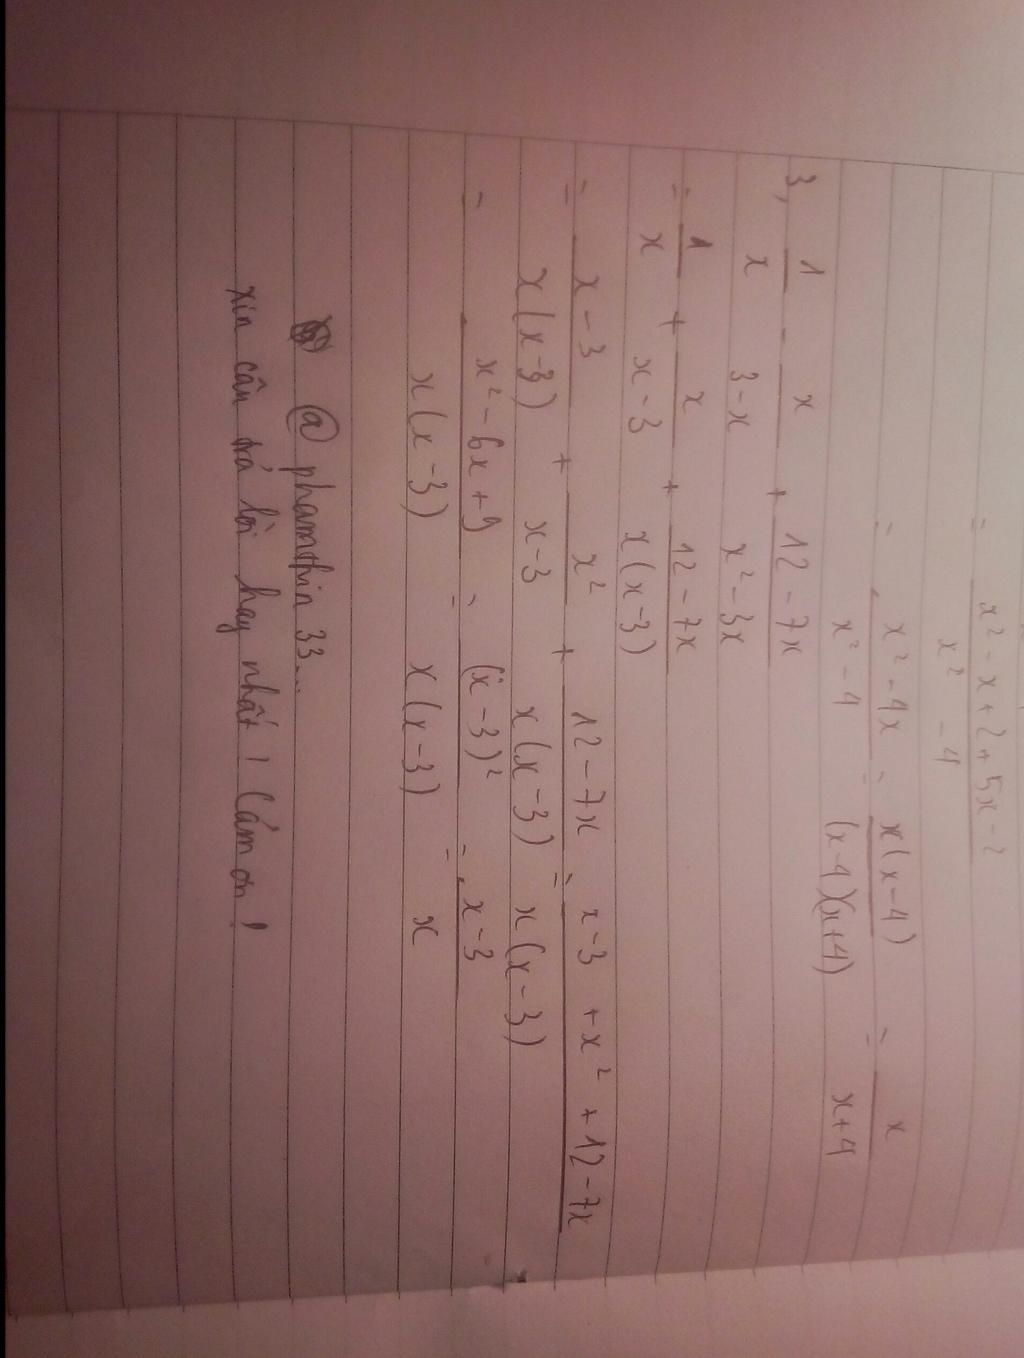 = x² - x + 2 + 5x - 2 / x² - 4
= x² - 4x / x² - 4 = x(x-4) / (x-4)(x+4) = x / x+4
3, 1/x - x / 3-x + 12 - 7x / x² - 3x
= 1/x + x / x-3 + 12 - 7x / x(x-3)
= x-3 / x(x-3) + x² / x-3 + 12 - 7x / x(x-3) = x-3 + x² + 12 - 7x / x(x-3)
= x² - 6x + 9 / x(x-3) = (x-3)² / x(x-3) = x-3 / x
@ phamthin 33...
xin câu trả lời hay nhất! Cám ơn!